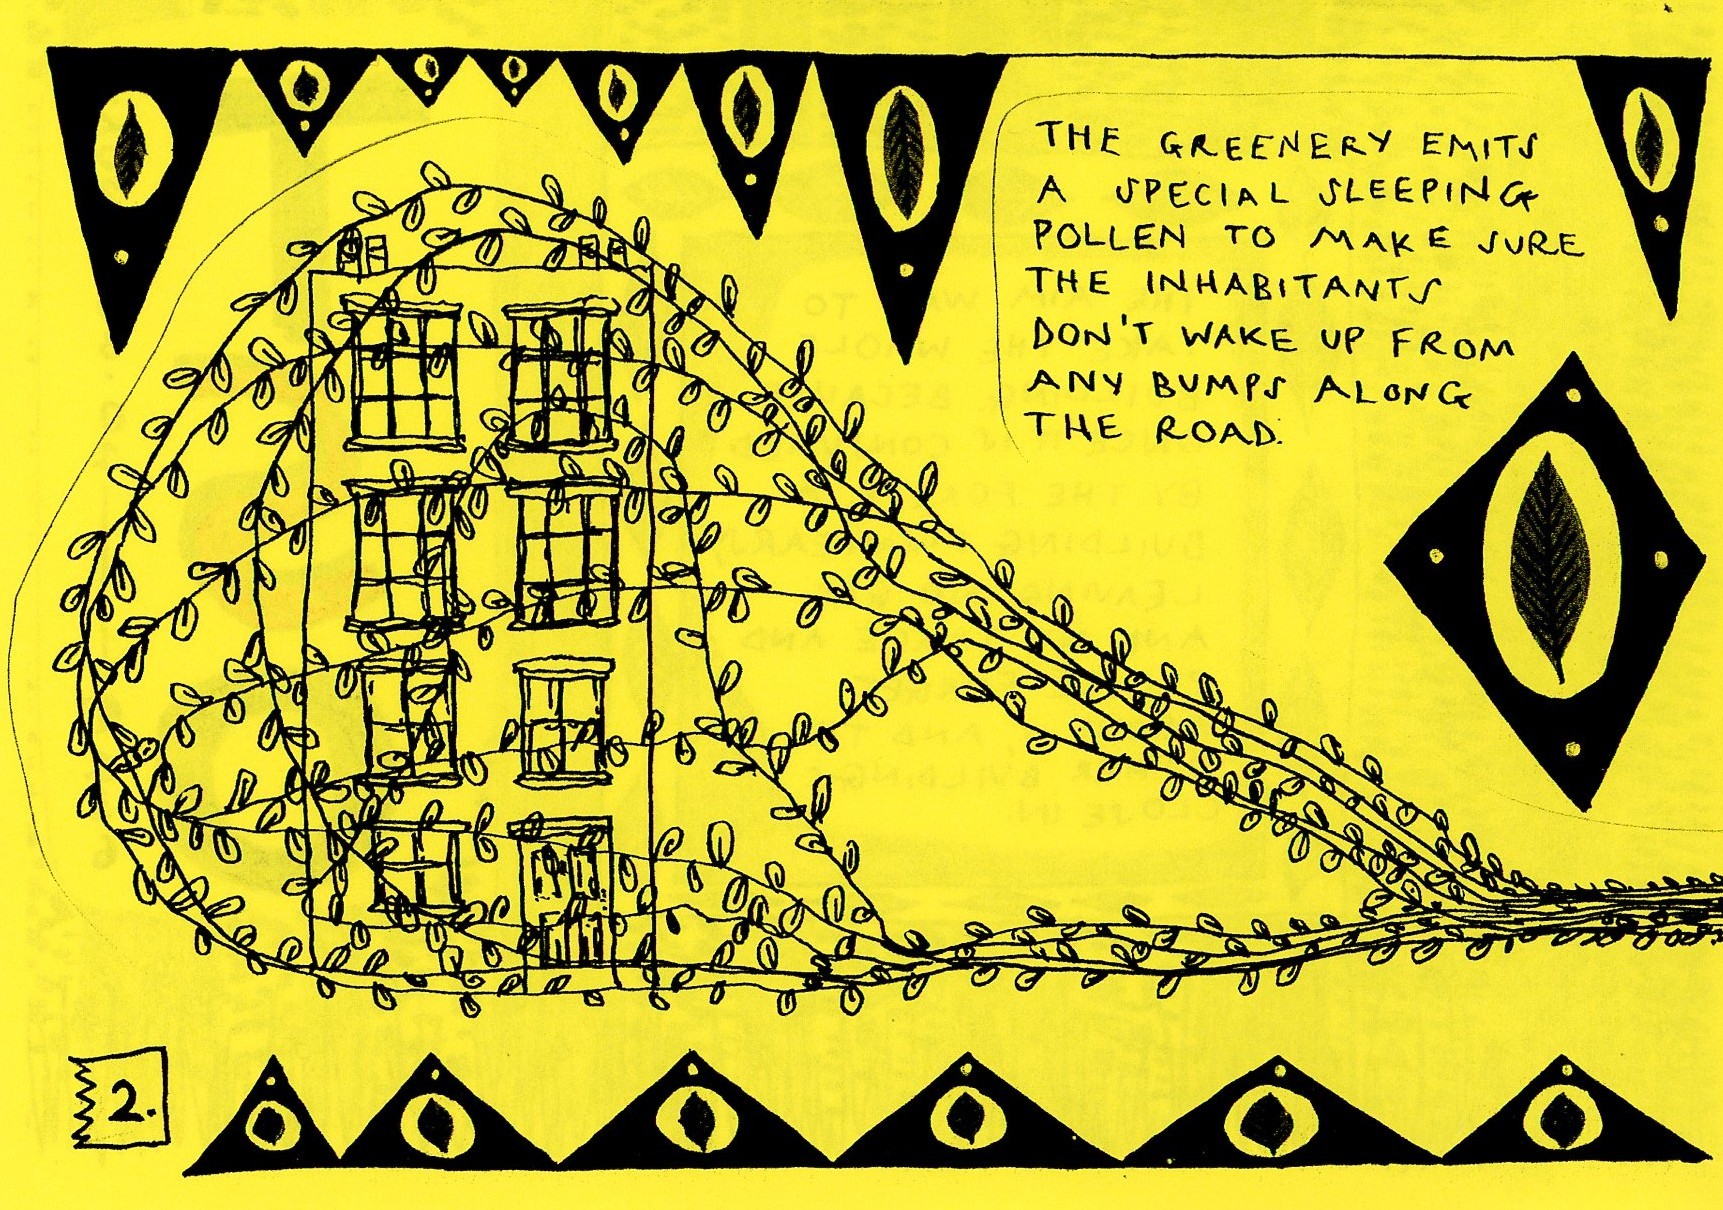 THE GREENERY EMITS
A SPECIAL SLEEPING
POLLEN TO MAKE SURE
THE INHABITANTS
DON'T WAKE UP FROM
ANY BUMPS ALONG
THE ROAD.
2.